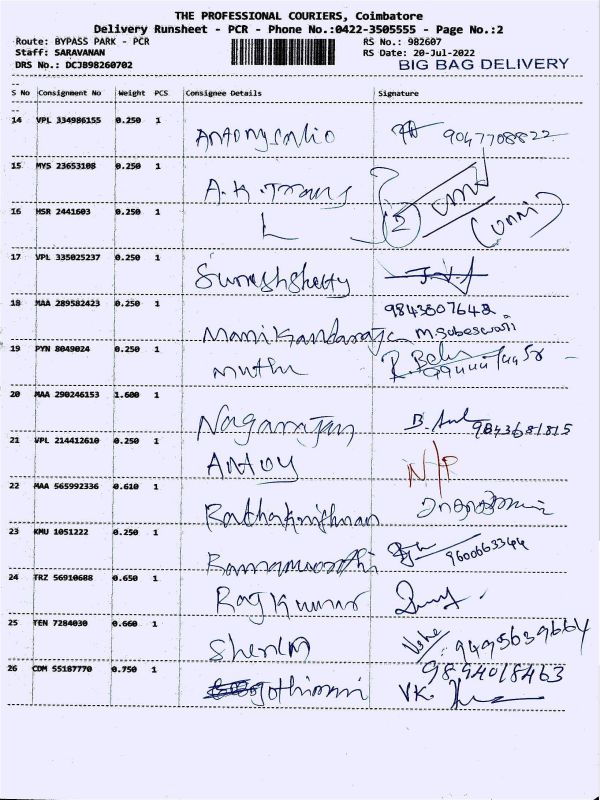 THE PROFESSIONAL COURIERS, Coimbatore
Delivery Runsheet - PCR - Phone No.:0422-3505555 - Page No.:2
Route: BYPASS PARK - PCR RS No.: 982607
Staff: SARAVANAN RS Date: 20-Jul-2022
DRS No.: DCJB98260702 BIG BAG DELIVERY
S No Consignment No Weight PCS Consignee Details Signature
14 VPL 334986155 0.250 1
9047708822
15 MYS 23653108 0.250 1 A.K.Trans
16 HSR 2441603 0.250 1 2
17 VPL 335025237 0.250 1 Sureshshetty
18 MAA 289582423 0.250 1 9843807642
Manikandaraja
19 PYN 8049024 0.250 1 Muthu
20 MAA 290246153 1.600 1 Nagarajan 9843681815
21 VPL 214412610 0.250 1 Antoy N/P
22 MAA 565992336 0.610 1 Rathakrithnan
23 KMU 1051222 0.250 1 Ramamoorthi 9600663344
24 TRZ 56910688 0.650 1 Rajkumar
25 TEN 7284030 0.660 1 9495639664
26 CDM 55187770 0.750 1 9894018463
VK.